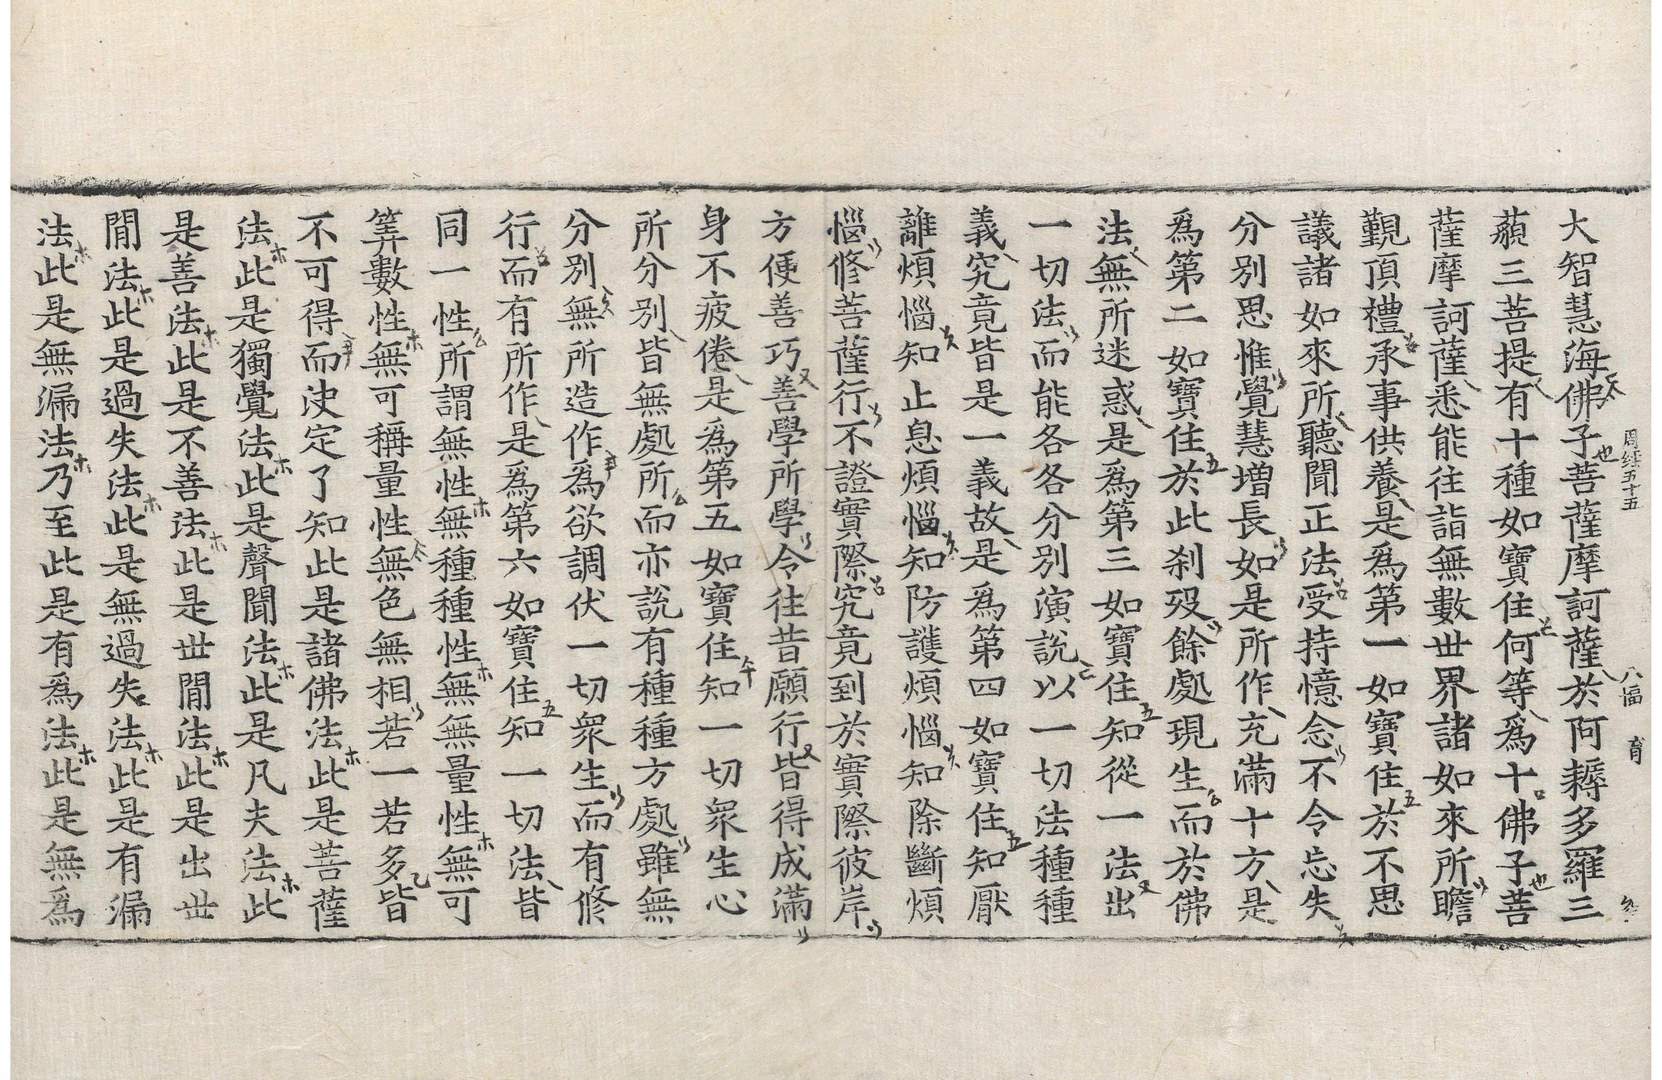 周經五十五
八幅
育
大智慧海佛子菩薩摩訶薩於阿耨多羅三
藐三菩提有十種如寶住何等爲十佛子菩
薩摩訶薩悉能往詣無數世界諸如來所瞻
覲頂禮承事供養是爲第一如寶住於不思
議諸如來所聽聞正法受持憶念不令忘失
分別思惟覺慧增長如是所作充滿十方是
爲第二如寶住於此刹歿餘處現生而於佛
法無所迷惑是爲第三如寶住知從一法出
一切法而能各各分別演說以一切法種種
義究竟皆是一義故是爲第四如寶住知厭
離煩惱知止息煩惱知防護煩惱知除斷煩
惱修菩薩行不證實際究竟到於實際彼岸
方便善巧善學所學令往昔願行皆得成滿
身不疲倦是爲第五如寶住知一切衆生心
所分別皆無處所而亦說有種種方處雖無
分別無所造作爲欲調伏一切衆生而有修
行而有所作是爲第六如寶住知一切法皆
同一性所謂無性無種種性無無量性無可
筭數性無可稱量性無色無相若一若多皆
不可得而決定了知此是諸佛法此是菩薩
法此是獨覺法此是聲聞法此是凡夫法此
是善法此是不善法此是世間法此是出世
間法此是過失法此是無過失法此是有漏
法此是無漏法乃至此是有爲法此是無爲